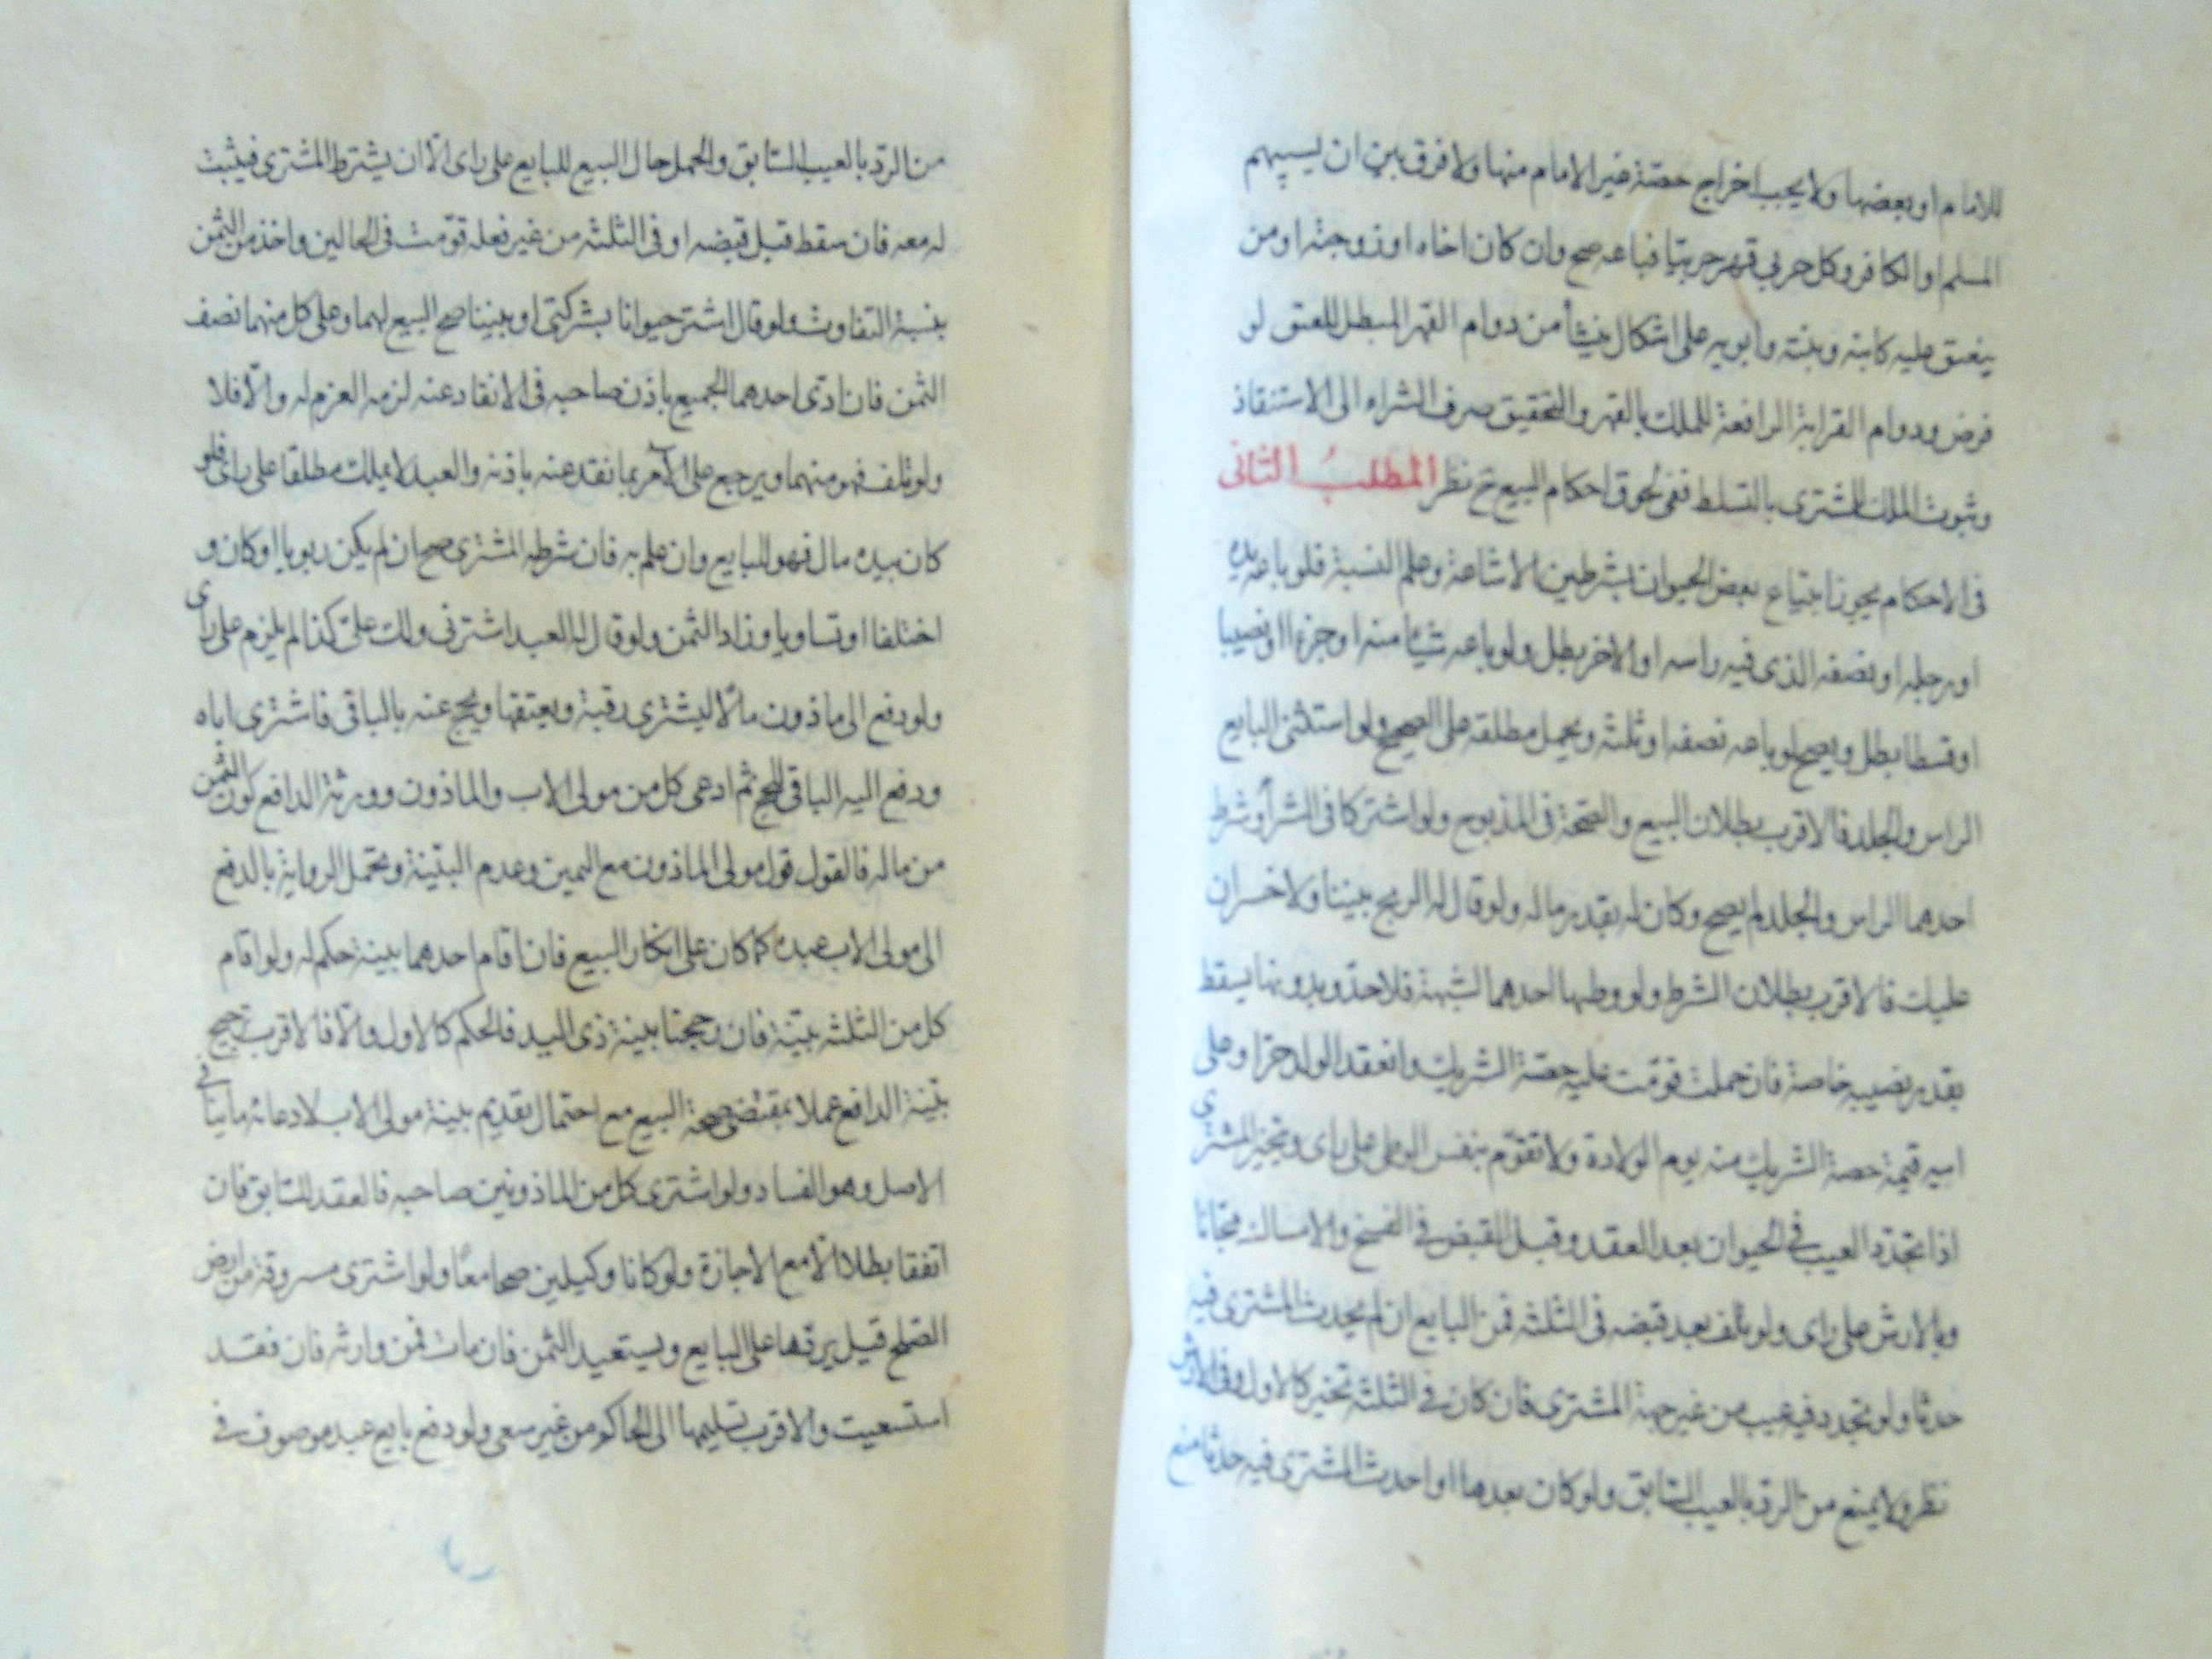 للامام او بعضها ولا يجب اخراج حصة غير الامام منها ولا فرق بين ان يسبيهم
المسلم او الكافر وكل حربي قهر حربيا فباعه صح وان كان اخاه او زوجته او من
ينعتق عليه كابنه وبنته وابويه على اشكال ينشأ من دوام القهر المبطل للعتق لو
فرض ودوام القرابة الرافعة للملك بالقهر والتحقيق صرف الشراء الى الاستنقاذ
وثبوت الملك للمشترى بالتسلط ففى لحوق احكام البيع ح نظر المطلب الثانى
فى الاحكام يجوز ابتياع بعض الحيوان بشرطين الاشاعة وعلم النسبة فلو باعه يده
او رجله او نصفه الذى فيه راسه او الاخر بطل ولو باعه شيئا منه او جزءا او نصيبا
او قسطا بطل ويصح لو باعه نصفه او ثلثه ويحمل مطلقه على الصحيح ولو استثنى البايع
الراس والجلد فالاقرب بطلان البيع والصحة فى المذبوح ولو اشتركا فى الشراء وشرط
احدهما الراس والجلد لم يصح وكان له بقدر ماله ولو قال له الربح بيننا ولا خسران
عليك فالاقرب بطلان الشرط ولو وطيها احدهما لشبهة فلا حد وبدونها يسقط
بقدر نصيبه خاصة فان حملت قومت عليه حصة الشريك وانعقد الولد حرا وعلى
ابيه قيمة حصة الشريك منه يوم الولادة ولا تقوم بنفس الوطى على راى ويتخير المشترى
اذا تجدد العيب فى الحيوان بعد العقد وقبل القبض فى الفسخ والامساك مجانا
وبالارش على راى ولو تلف بعد قبضه فى الثلثة فمن البايع ان لم يحدث المشترى فيه
حدثا ولو تجدد فيه عيب من غير جهة المشترى فان كان فى الثلثة تخير كالاول وفى الارش
نظر ولا يمنع من الرد بالعيب السابق ولو كان بعدها او احدث المشترى فيه حدثا منع
من الرد بالعيب السابق والحمل حال البيع للبايع على راى الا ان يشترط المشترى فيثبت
له معه فان سقط قبل قبضه او فى الثلثة من غير فعله قومت فى الحالين واخذ من الثمن
بنسبة التفاوت ولو قال اشتر حيوانا بشركتى او بيننا صح البيع لهما وعلى كل منهما نصف
الثمن فان ادى احدهما الجميع باذن صاحبه فى الانقاد عنه لزمه الغرم له والا فلا
ولو تلف فهو منهما ويرجع على الآمر بما نقد عنه باذنه والعبد لا يملك مطلقا على راى فلو
كان بيده مال فهو للبايع وان علم به فان شرطه المشترى صح ان لم يكن ربويا او كان و
اختلفا او تساويا وزاد الثمن ولو قال له العبد اشترنى ولك على كذا لم يلزم على راى
ولو دفع الى ماذون مالا ليشترى رقبة ويعتقها ويحج عنه بالباقى فاشترى اباه
ودفع اليه الباقى للحج ثم ادعى كل من مولى الاب والماذون وورثة الدافع كون الثمن
من ماله فالقول قول مولى الماذون مع اليمين وعدم البينة وتحمل الرواية بالدفع
الى مولى الاب عبده كما كان على انكار البيع فان اقام احدهما بينة حكم له ولو اقام
كل من الثلثه بينة فان رجحنا بينة ذى اليد فالحكم كالاول والا فالاقرب ترجيح
بينة الدافع عملا بمقتضى صحة البيع مع احتمال تقديم بينة مولى الاب لادعائه ما ينافى
الاصل وهو الفساد ولو اشترى كل من الماذونين صاحبه فالعقد للسابق فان
اتفقا بطلا الا مع الاجازة ولو كانا وكيلين صحا معا ولو اشترى مسروقة من ارض
الصلح قيل يردها على البايع ويستعيد الثمن فان مات فمن وارثه فان فقد
استسعيت والاقرب تسليمها الى الحاكم من غير سعى ولو دفع بايع عبد موصوف فى